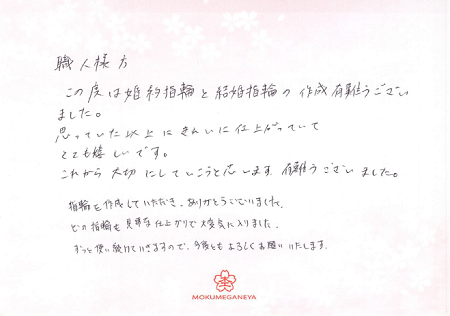 職人様方
この度は婚約指輪と結婚指輪の作成有難うござい
ました。
思っていた以上にきれいに仕上がっていて
とても嬉しいです。
これから大切にしていこうと思います。有難うございました。
指輪を作成していただき、ありがとうございました。
どの指輪も見事な仕上がりで大変気に入りました。
ずっと使い続けていきますので、今後ともよろしくお願いいたします。
MOKUMEGANEYA